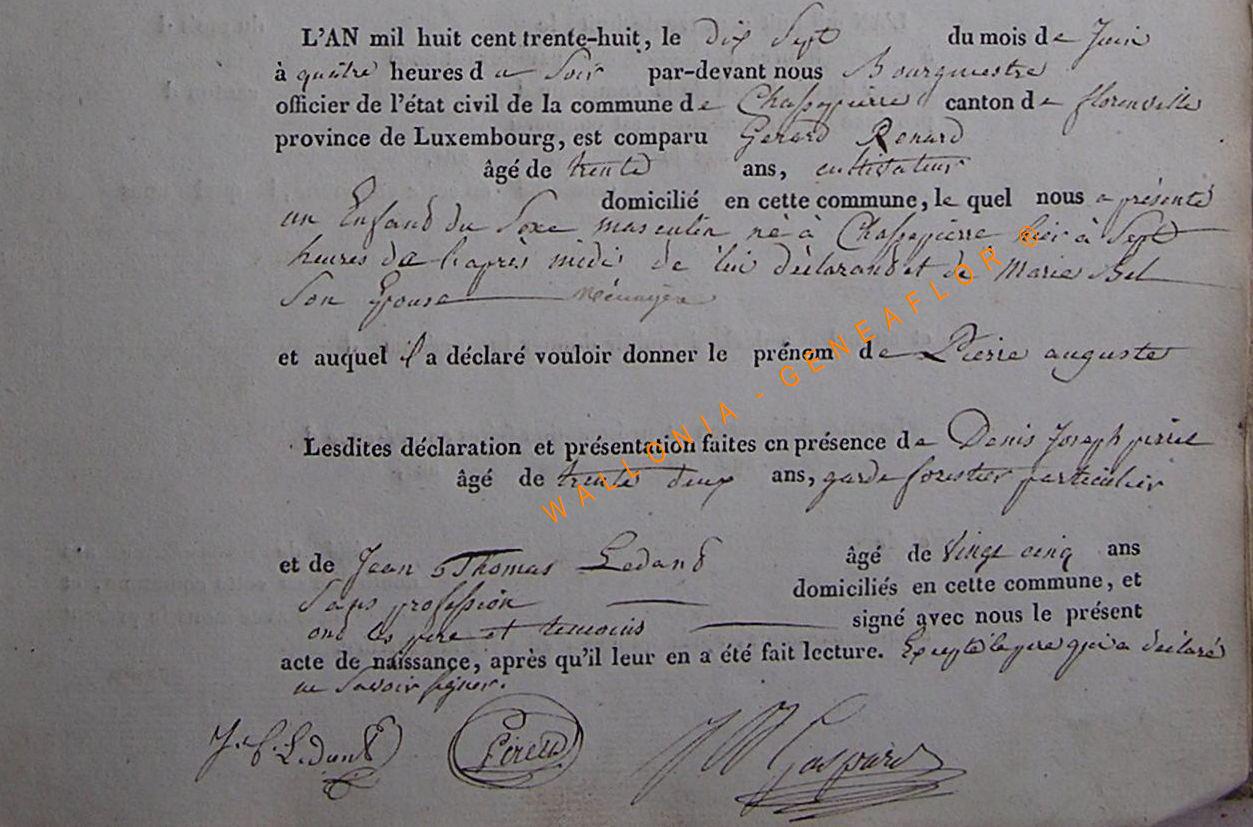 L'AN mil huit cent trente-huit, le dix Sept du mois de Juin
à quatre heures du Soir par-devant nous Bourgmestre
officier de l'état civil de la commune de Chassepierre canton de florenville
province de Luxembourg, est comparu Gerard Renard
âgé de trente ans, cultivateur
domicilié en cette commune, le quel nous a présenté
un Enfand du Sexe masculin né à Chassepierre hier à Sept
heures de l'après midi de lui déclarand et de Marie
Son Epouse Ménagère
et auquel il a déclaré vouloir donner le prénom de Pierre auguste
Lesdites déclaration et présentation faites en présence de Denis Joseph
âgé de trente deux ans, garde forestier particulier
et de Jean Thomas Ledand âgé de Vingt cinq ans
Sans profession domiciliés en cette commune, et
ont les père et temoins signé avec nous le présent
acte de naissance, après qu'il leur en a été fait lecture. Excepté le père qui a déclaré
ne Savoir signer.
Gaspard
WALLONIA - GENEAFLOR ©